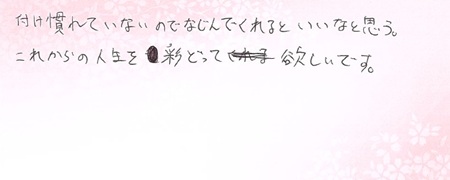 付け慣れていないのでなじんでくれるといいなと思う。
これからの人生を彩どって欲しいです。